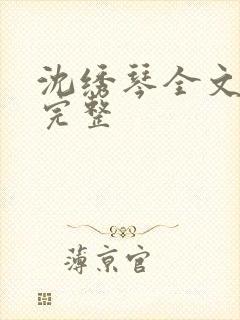 沈绣琴全文
完整
薄京官